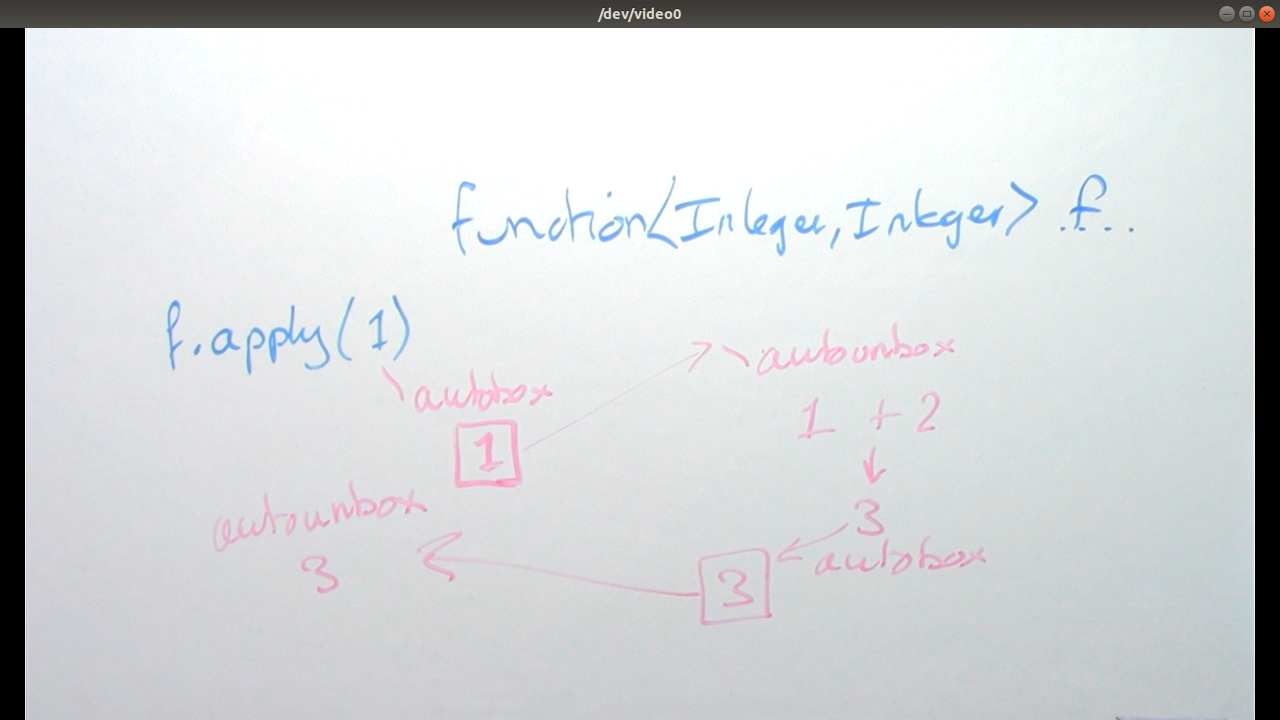 /dev/video0
function<Integer,Integer> f...
f.apply(1)
autobox
autounbox
1
1 + 2
autounbox
3
3
autobox
3